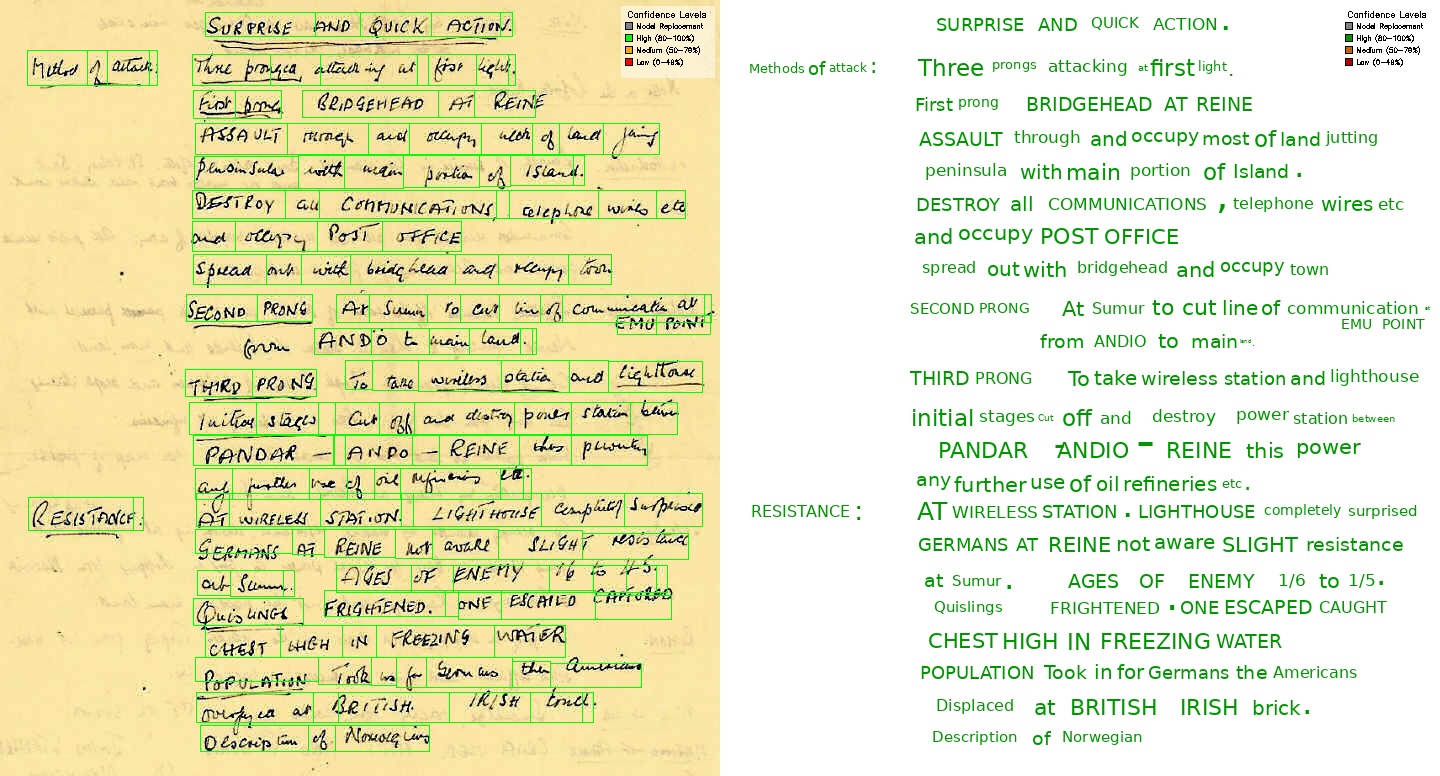 SURPRISE AND QUICK ACTION.
Method of attack:
Three pronged attacking at first light.
First prong BRIDGEHEAD AT REINE
ASSAULT through and occupy neck of land joining
peninsular with main portion of Island.
DESTROY all COMMUNICATIONS, telephone wires etc
and occupy POST OFFICE
Spread out with bridghead and occupy town
SECOND PRONG At Sumur to cut line of communication at
EMU POINT
from ANDO to main land.
THIRD PRONG To take wireless station and lighthouse
Initial stages Cut off and destroy power station
PANDAR — ANDO — REINE thus preventing
any further use of oil refineries etc.
RESISTANCE:
AT WIRELESS STATION. LIGHTHOUSE completely surprised
GERMANS AT REINE not aware SLIGHT resistance
at Sumur. AGES OF ENEMY 16 to 45.
QUISLINGS FRIGHTENED. ONE ESCAPED CAPTURED
CHEST HIGH IN FREEZING WATER
POPULATION Took us for Germans then Americans
at BRITISH. IRISH
Description of Norwegians
Confidence Levels
Model Replacement
High (80-100%)
Medium (50-79%)
Low (0-49%)
SURPRISE AND QUICK ACTION .
Methods of attack :
Three prongs attacking at first light .
First prong BRIDGEHEAD AT REINE
ASSAULT through and occupy most of land jutting
peninsula with main portion of Island .
DESTROY all COMMUNICATIONS , telephone wires etc
and occupy POST OFFICE
spread out with bridgehead and occupy town
SECOND PRONG At Sumur to cut line of communication at
EMU POINT
from ANDIO to main land.
THIRD PRONG To take wireless station and lighthouse
initial stages Cut off and destroy power station between
PANDAR - ANDIO - REINE this power
any further use of oil refineries etc .
RESISTANCE :
AT WIRELESS STATION . LIGHTHOUSE completely surprised
GERMANS AT REINE not aware SLIGHT resistance
at Sumur . AGES OF ENEMY 1/6 to 1/5 .
Quislings FRIGHTENED . ONE ESCAPED CAUGHT
CHEST HIGH IN FREEZING WATER
POPULATION Took in for Germans the Americans
Displaced at BRITISH IRISH brick .
Description of Norwegian
Confidence Levels
Model Replacement
High (80-100%)
Medium (50-79%)
Low (0-49%)